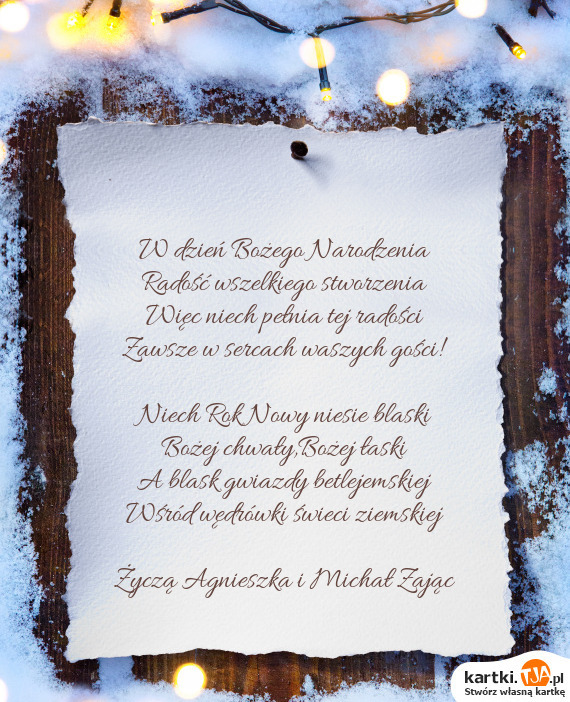 W dzień Bożego Narodzenia
Radość wszelkiego stworzenia
Więc niech pełnia tej radości
Zawsze w sercach waszych gości!
Niech Rok Nowy niesie blaski
Bożej chwały,Bożej łaski
A blask gwiazdy betlejemskiej
Wśród wędrówki świeci ziemskiej
Życzą Agnieszka i Michał Zając
kartki.TJA.pl
Stwórz własną kartkę